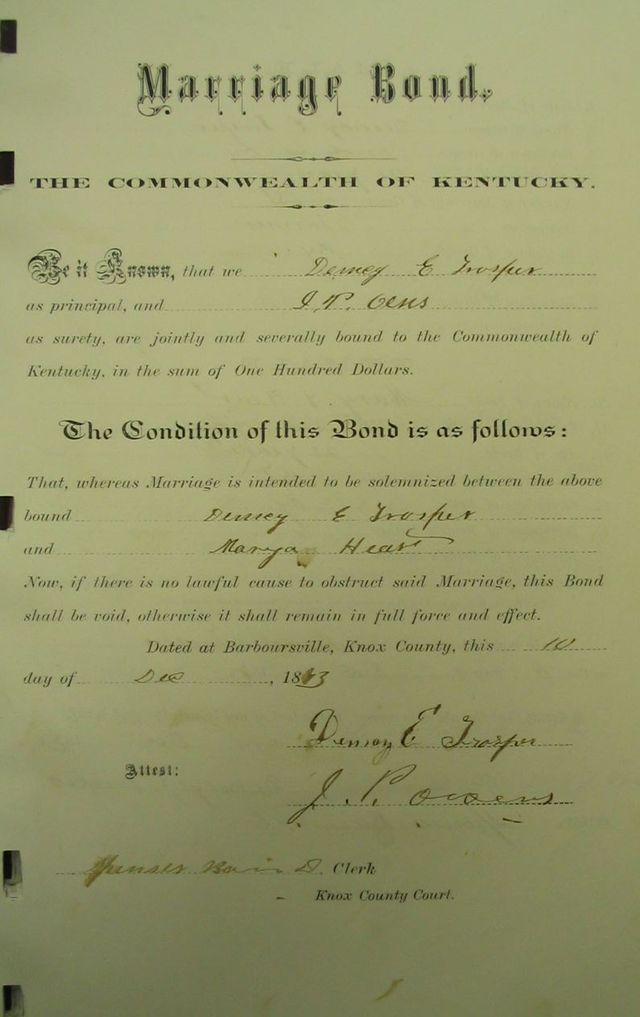 Marriage Bond.
THE COMMONWEALTH OF KENTUCKY.
Be it Known, that we Demcy E Trosper
as principal, and J. P. Oens
as surety, are jointly and severally bound to the Commonwealth of
Kentucky, in the sum of One Hundred Dollars.
The Condition of this Bond is as follows:
That, whereas Marriage is intended to be solemnized between the above
bound Demcy E Trosper
and Heast
Now, if there is no lawful cause to obstruct said Marriage, this Bond
shall be void, otherwise it shall remain in full force and effect.
Dated at Barboursville, Knox County, this 10
day of Dec , 18 3
Demcy E Trosper
Attest:
J. P. Owens
D. Clerk
Knox County Court.